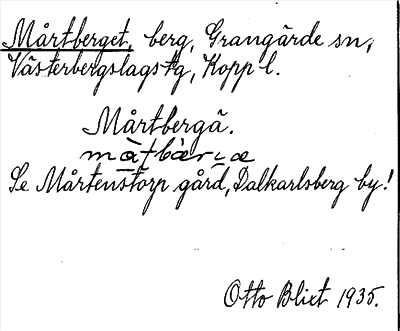 Mårtberget, berg, Grangärde sn,
Västerbergslags tg, Kopp l.
Mårtbergä.
Se Mårtenstorp gård, Dalkarlsberg by!
Otto Blixt 1935.